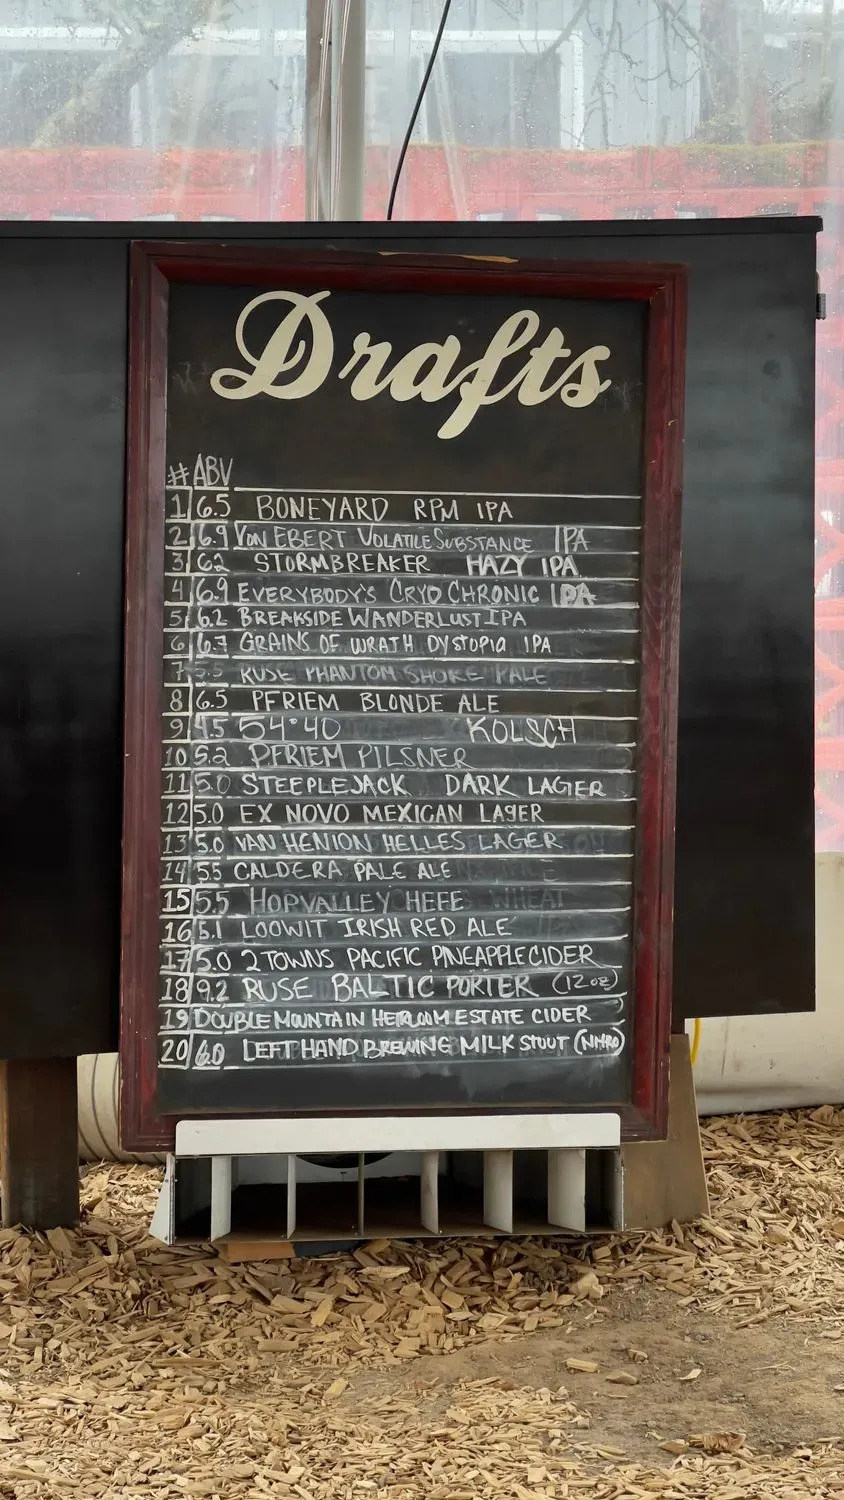 Drafts
# ABV
1 6.5 BONEYARD RPM IPA
2 6.9 VON EBERT VOLATILE SUBSTANCE IPA
3 62 STORMBREAKER HAZY IPA
4 6.9 EVERYBODY'S CRYO CHRONIC IPA
5 6.2 BREAKSIDE WANDERLUST IPA
6 6.7 GRAINS OF WRATH DYSTOPIA IPA
7 5.5 RUSE PHANTOM SMOKE PALE
8 6.5 PFRIEM BLONDE ALE
9 4.5 54°40 KOLSCH
10 5.2 PFRIEM PILSNER
11 5.0 STEEPLEJACK DARK LAGER
12 5.0 EX NOVO MEXICAN LAGER
13 5.0 VAN HENION HELLES LAGER
14 55 CALDERA PALE ALE
15 5.5 HOPVALLEY HEFE
16 5.1 LOOWIT IRISH RED ALE
17 5.0 2 TOWNS PACIFIC PINEAPPLE CIDER
18 9.2 RUSE BALTIC PORTER (12oz)
19 DOUBLE MOUNTAIN HEIRLOOM ESTATE CIDER
20 6.0 LEFT HAND BREWING MILK STOUT (NITRO)